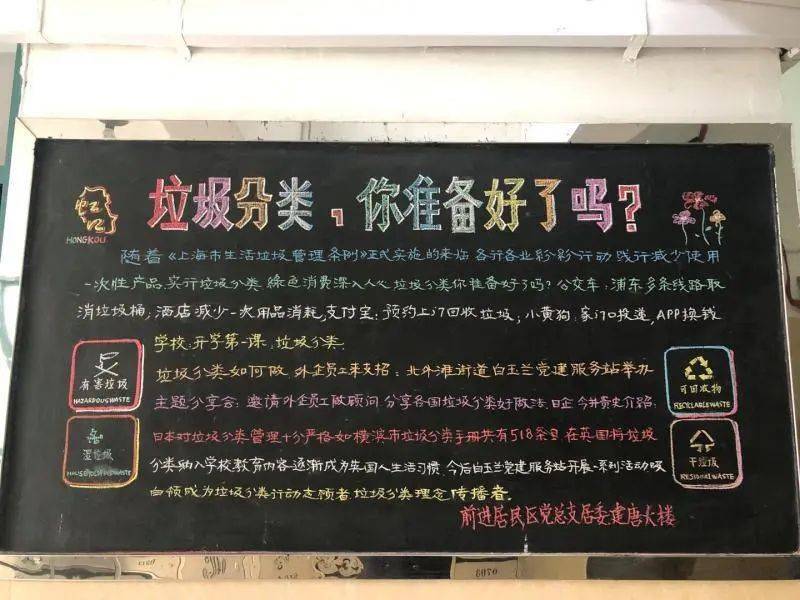 虹口
HONGKOU
垃圾分类，你准备好了吗？
随着《上海市生活垃圾管理条例》正式实施的来临 各行各业纷纷行动 践行减少使用
一次性产品，实行垃圾分类，绿色消费深入人心 垃圾分类你准备好了吗？公交车：浦东多条线路取
消垃圾桶；酒店减少一次用品消耗，支付宝：预约上门回收垃圾；小黄狗：家门口投递，APP换钱
学校：开学第一课，垃圾分类.
垃圾分类如何做 外企员工来支招：北外滩街道白玉兰党建服务站举办
主题分享会：邀请外企员工做顾问 分享各国垃圾分类好做法，日企 今井贵史介绍：
日本对垃圾分类管理十分严格如横滨市垃圾分类手册共有518条目，在英国将垃圾
分类纳入学校教育内容逐渐成为英国人生活习惯 今后白玉兰党建服务站开展一系列活动吸
白领成为垃圾分类行动志愿者，垃圾分类理念传播者。
前进居民区党总支居委建唐大楼
有害垃圾
HAZARDOUS WASTE
湿垃圾
HOUSEHOLD FOOD WASTE
可回收物
RECYCLABLE WASTE
干垃圾
RESIDUAL WASTE